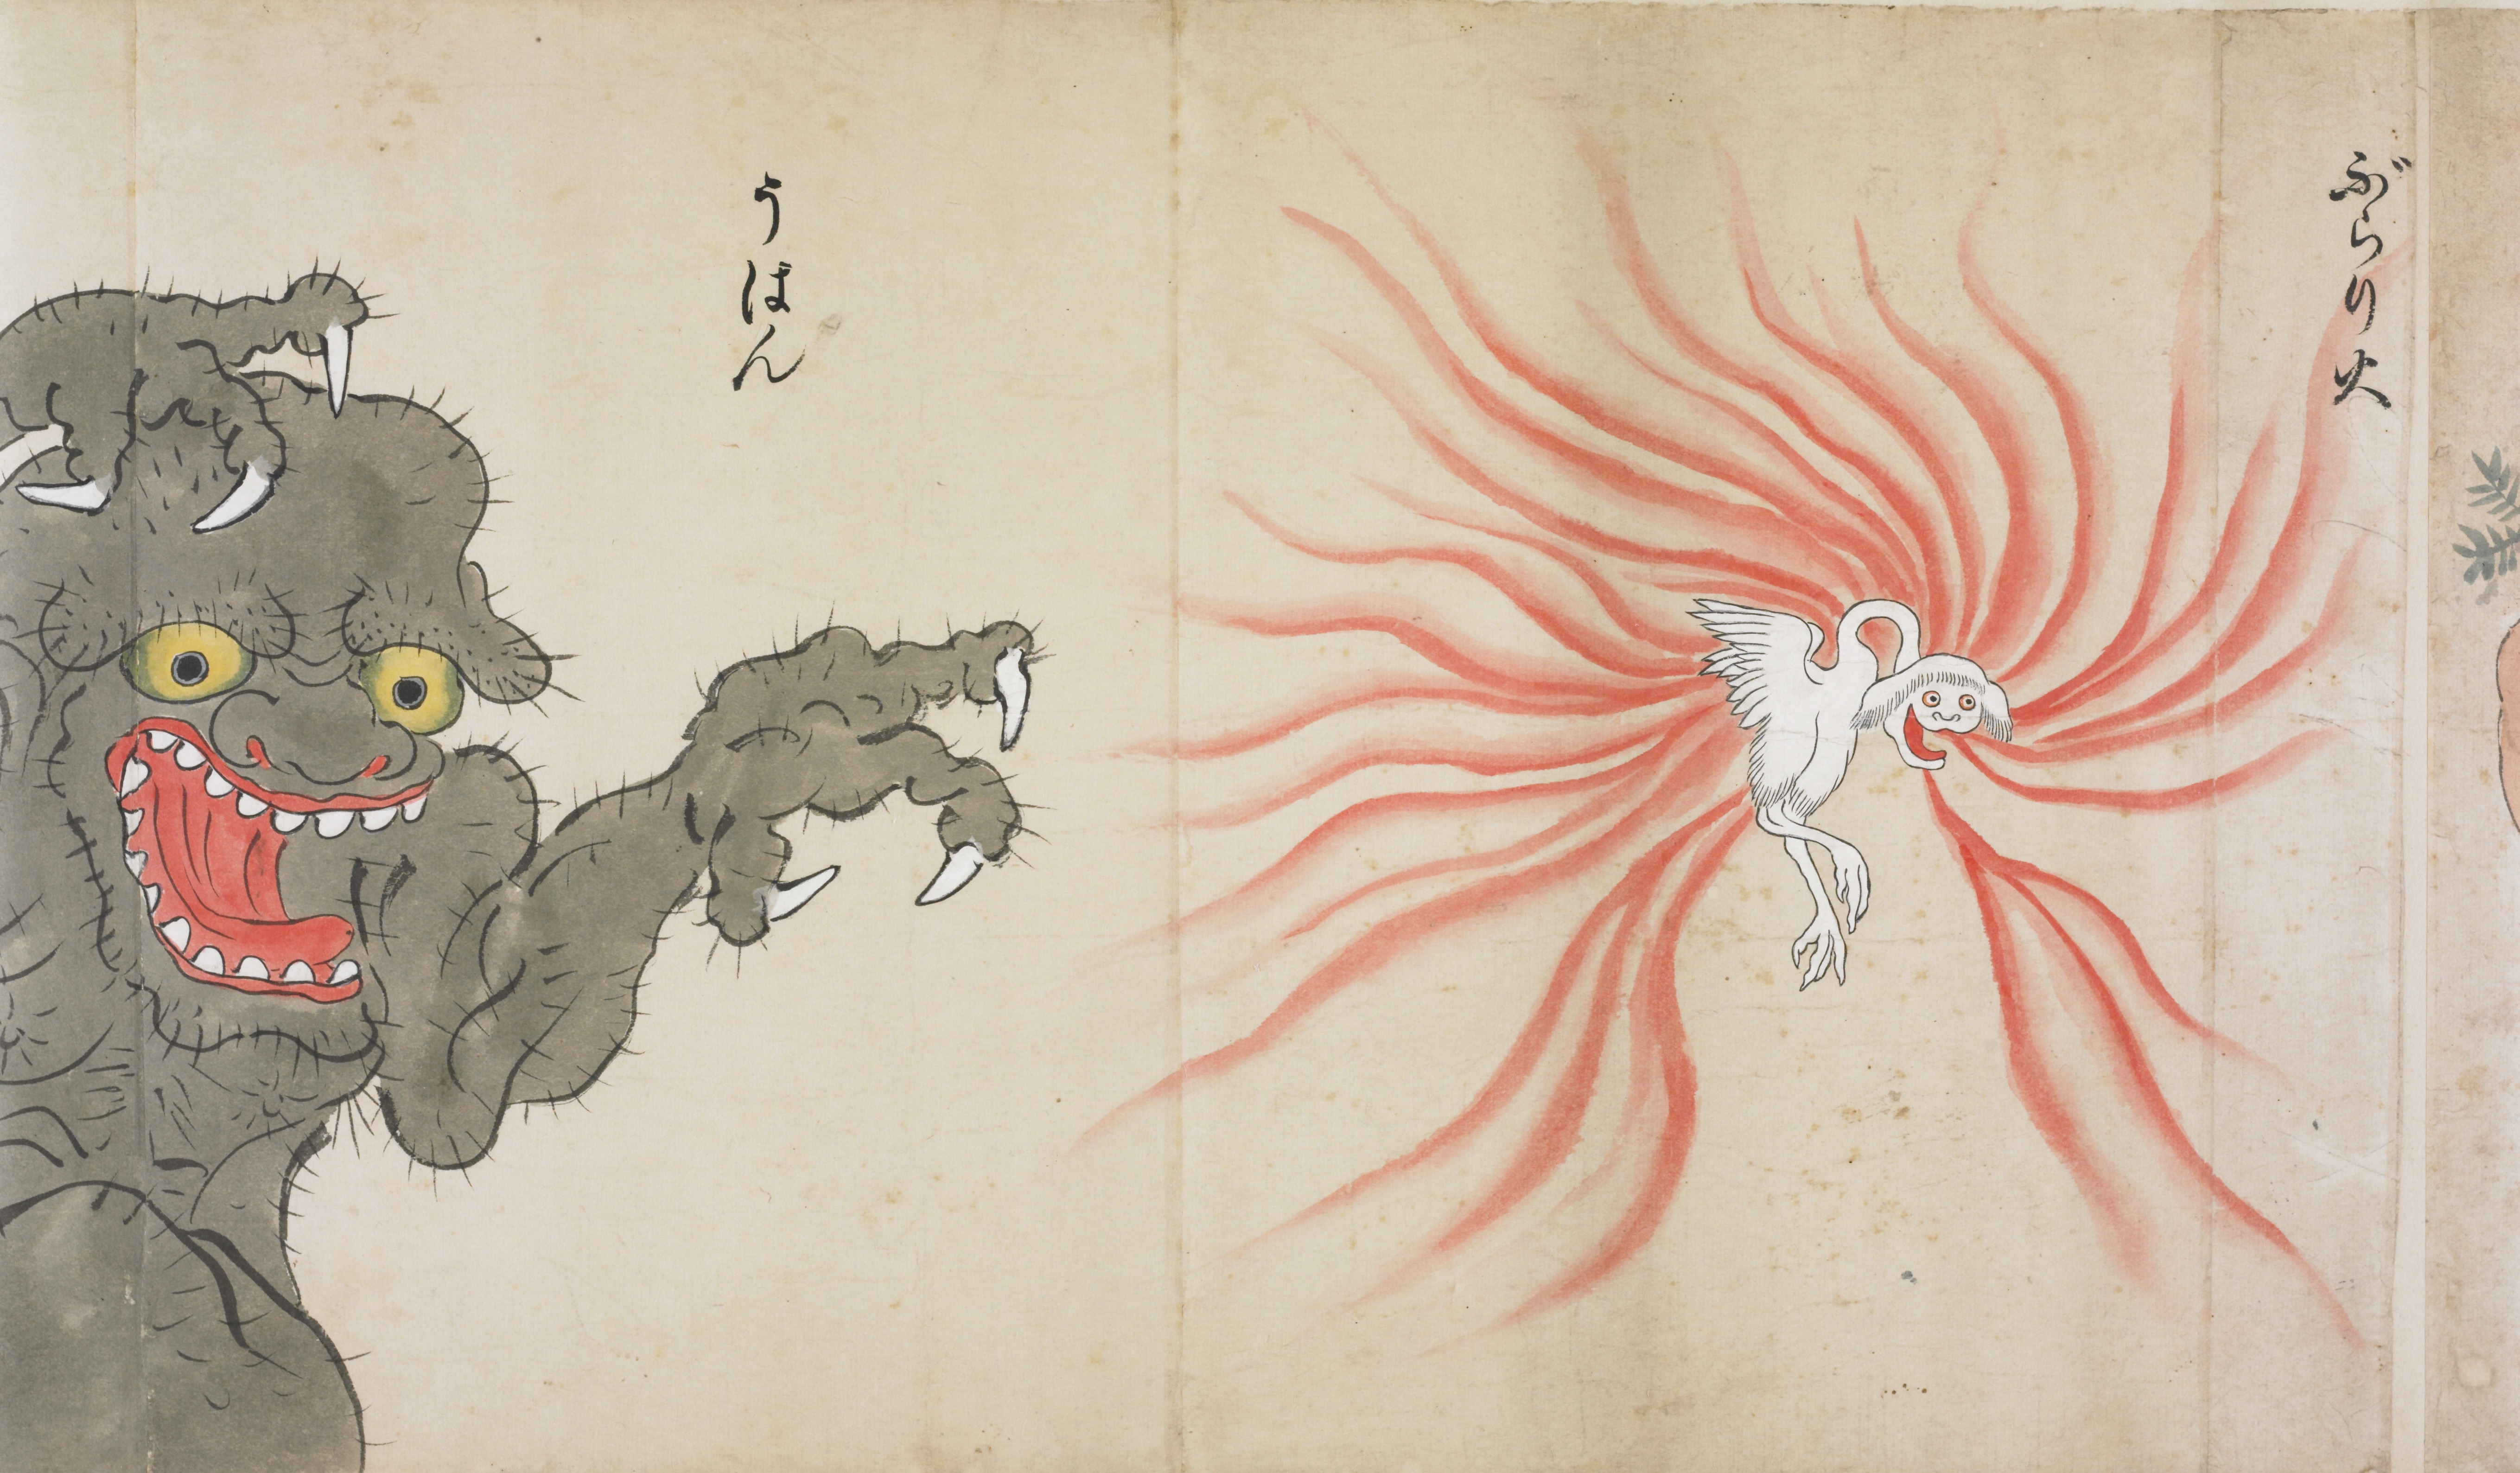 ぶらり火
うはん